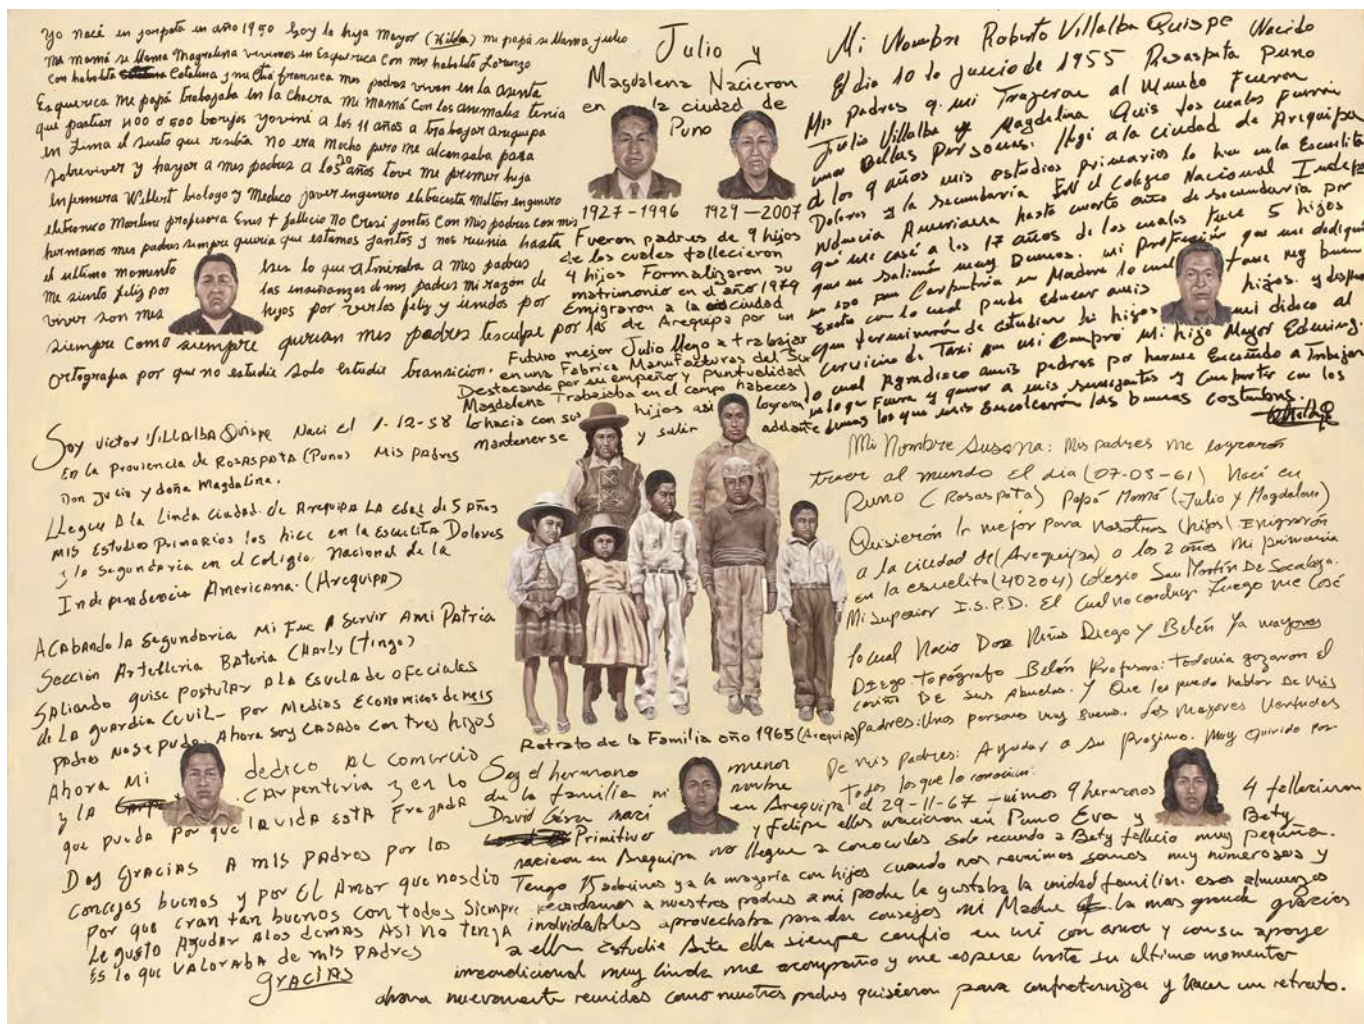 Yo nací en             en año 1950 Soy la hija Mayor (Hilda) mi papá se llama julio
Me mamá se llama Magdalena vivemos en Esquerica Con mes habolito Lorenzo
con habolita Catalina y mi tía franseca mes padres vivan en la asenta
Esquerica Me papá trabajaba en la chacra mi Mamá Con los anemales tenia
que pastiar 400 o 500 borejos yovine a los 11 años a trabajar arequepa
en Lema el sueto que resibia No era mocho pero me alcansaba para
sobreviver y hayoar a mes padres a los 20 años tove me primer heja
enfermera Wilbert biologo y Medico javer engenero elbacesta Melton engenero
eletroneco Marlene profesora Enus + fallecio No Cresi jontos Con Mes padres con mis
hermanos mes padres sempre queria que estamos jantos y nos reunia hasta
el ultimo momento eses lo que atmeraba a mes padres
Me siento feliz por las enseñanzas de mes padres mi razon de
viver son mes hejos por verlos feliz y unedos por
siempre Como siempre querian mes padres tesculpe por las
ortografia por que no estudie solo estudie transicion.
Julio y
Magdalena Nacieron
en la ciudad de
Puno
1927-1996 1929-2007
Fueron padres de 9 hijos
de los cuales fallecieron
4 hijos Formalizaron su
matrimonio en el año 1979
Emigraron a la ciudad
de Arequipa por un
Futuro mejor Julio llego a trabajar
en una Fabrica Manufacturas del Sur
Destacando por su empeño y puntualidad
Magdalena Trabajaba en el campo habeces
lo hacia con sus hijos asi lograron
mantenerse y salir adelante
Mi Nombre Roberto Villalba Quispe Nacido
El dia 10 de Junio de 1955 Rosaspata Puno
Mis padres q. mi Trageron al Mundo Fueron
Julio Villalba y Magdalena Quis los cuales fueron
unas Bellas Personas. llegé a la ciudad de Arequipa
de los 9 años mis estudios primarios lo hice en la Escuelita
Dolores y la secundaria En el Colegio Nacional Indepe
ndencia Americana hasta cuarto año de secundaria por
qué me casé a los 17 años de los cuales tuve 5 hijos
que me salieron muy Buenos. mi profesión que me dediqué
en eso fue Carpinteria en Madera lo cual tuve muy buen
Exito con lo cual pude educar amis hijos. y despues
que terminaron de estudiar los hijos mi didico al
servicio de Taxi que mi Compró mi hijo Mayor Edwing.
lo cual Agradisco amis padres por haberme Enceñado a Trabajar
en lo que Fuera y querer a mis semejantes y Compartir con los
demas los que mis Enculcaron las buenas costumbres.
Soy Victor VILLALBA Quispe Naci el 1-12-58
En la Provincia de Rosaspata (Puno) Mis Padres
Don Julio y doña Magdalina.
Llegue A la Linda ciudad de Arequipa LA edad de 5 años
Mis Estudios Primarios los hice en la Escuelita Dolores
y la segundaria en el Colegio Nacional de la
Independencia Americana. (Arequipa)
Acabando la segundaria Mi Fue A servir Ami Patria
Sección Artilleria Bateria Charly (Tingo)
Saliendo quise Postular A la Escuela de oficiales
de La guardia Civil- por Medios Economicos de mis
padres No se pudo. Ahora soy casado con tres hijos
Ahora Mi dedico al comercio
y la carpenteria y en lo
que pueda por que la vida está Fregada
Doy gracias A mis Padres por los
concejos buenos y por EL Amor que nos dio
Por que eran tan buenos con todos siempre
Le gusto Ayudar alos demas Asi no tenga
Es lo que VALORABA de mis Padres
gracias
Mi Nombre Susana: Mis padres me lograron
traer al mundo el dia (07-03-61) Nací en
Puno (Rosaspata) Papá Mamá (Julio y Magdalena)
Quisierón lo mejor para Nosotros (hijos) Emigrarón
a la ciudad de (Arequipa) a los 2 años Mi primaria
en la escuelita (40204) colegio San Martin De Socabaya.
Mi superior I.S.P.D. El Cual no concluy. Luego me Casé
lo cual Nacio Dos Niños Diego y Belén Ya mayores
Diego. topógrafo Belén Profesora: todavia gozaron el
cariño De sus Abuelos. Y Que les puedo hablar De Mis
Padres: Unas personas muy Buenas. Las Mayores Vertudes
De mis Padres: Ayudar a su Proximo. Muy Querido por
Todos los que lo conocian:
Retrato de la Familia año 1965 (Arequipa)
Soy el hermano menor
de la familia mi nombre
David César nací en Arequipa el 29-11-67 fuimos 9 hermanos 4 fallecieron
Primitivo y Felipe ellos nacieron en Puno Eva y Bety
nacieron en Arequipa no llegue a conocerlos solo recuerdo a Bety fallecio muy pequeña.
Tengo 15 sobrinos ya la mayoria con hijos cuando nos reunimos somos muy numerosos y
recordamos a nuestros padres a mi padre le gustaba la unidad familiar. esos almuerzos
inolvidables aprovechaba para dar consejos mi Madre la mas grande gracias
a ella Estudie Arte ella siempre confio en mi con amor y con su apoyo
incondicional muy linda me acompaño y me espero hasta su ultimo momento
ahora nuevamente reunidos como nuestros padres quisieron para confraternizar y hacer un retrato.